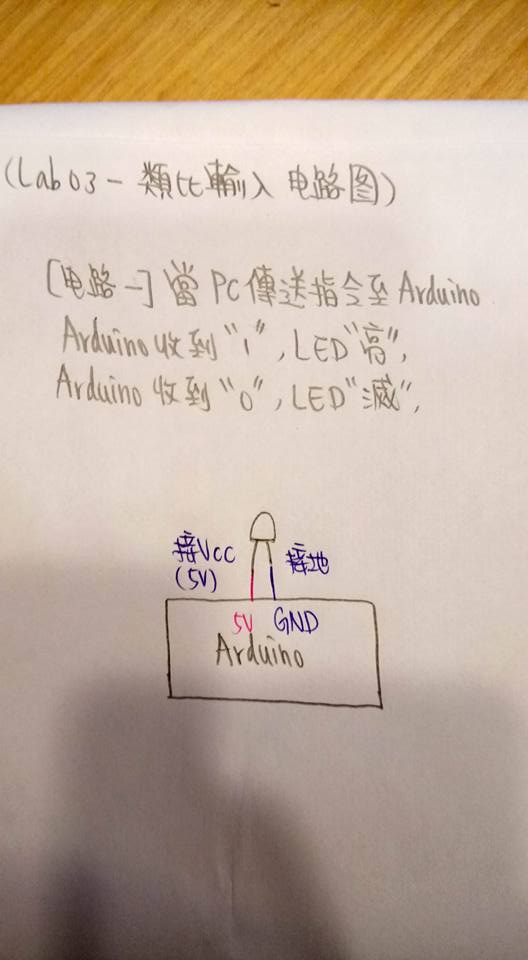 (Lab03-類比輸入 电路图)
[电路一]當PC傳送指令至Arduino
Arduino收到"1",LED"亮",
Arduino收到"0",LED"滅",
接Vcc
(5V)
接地
5V GND
Arduino